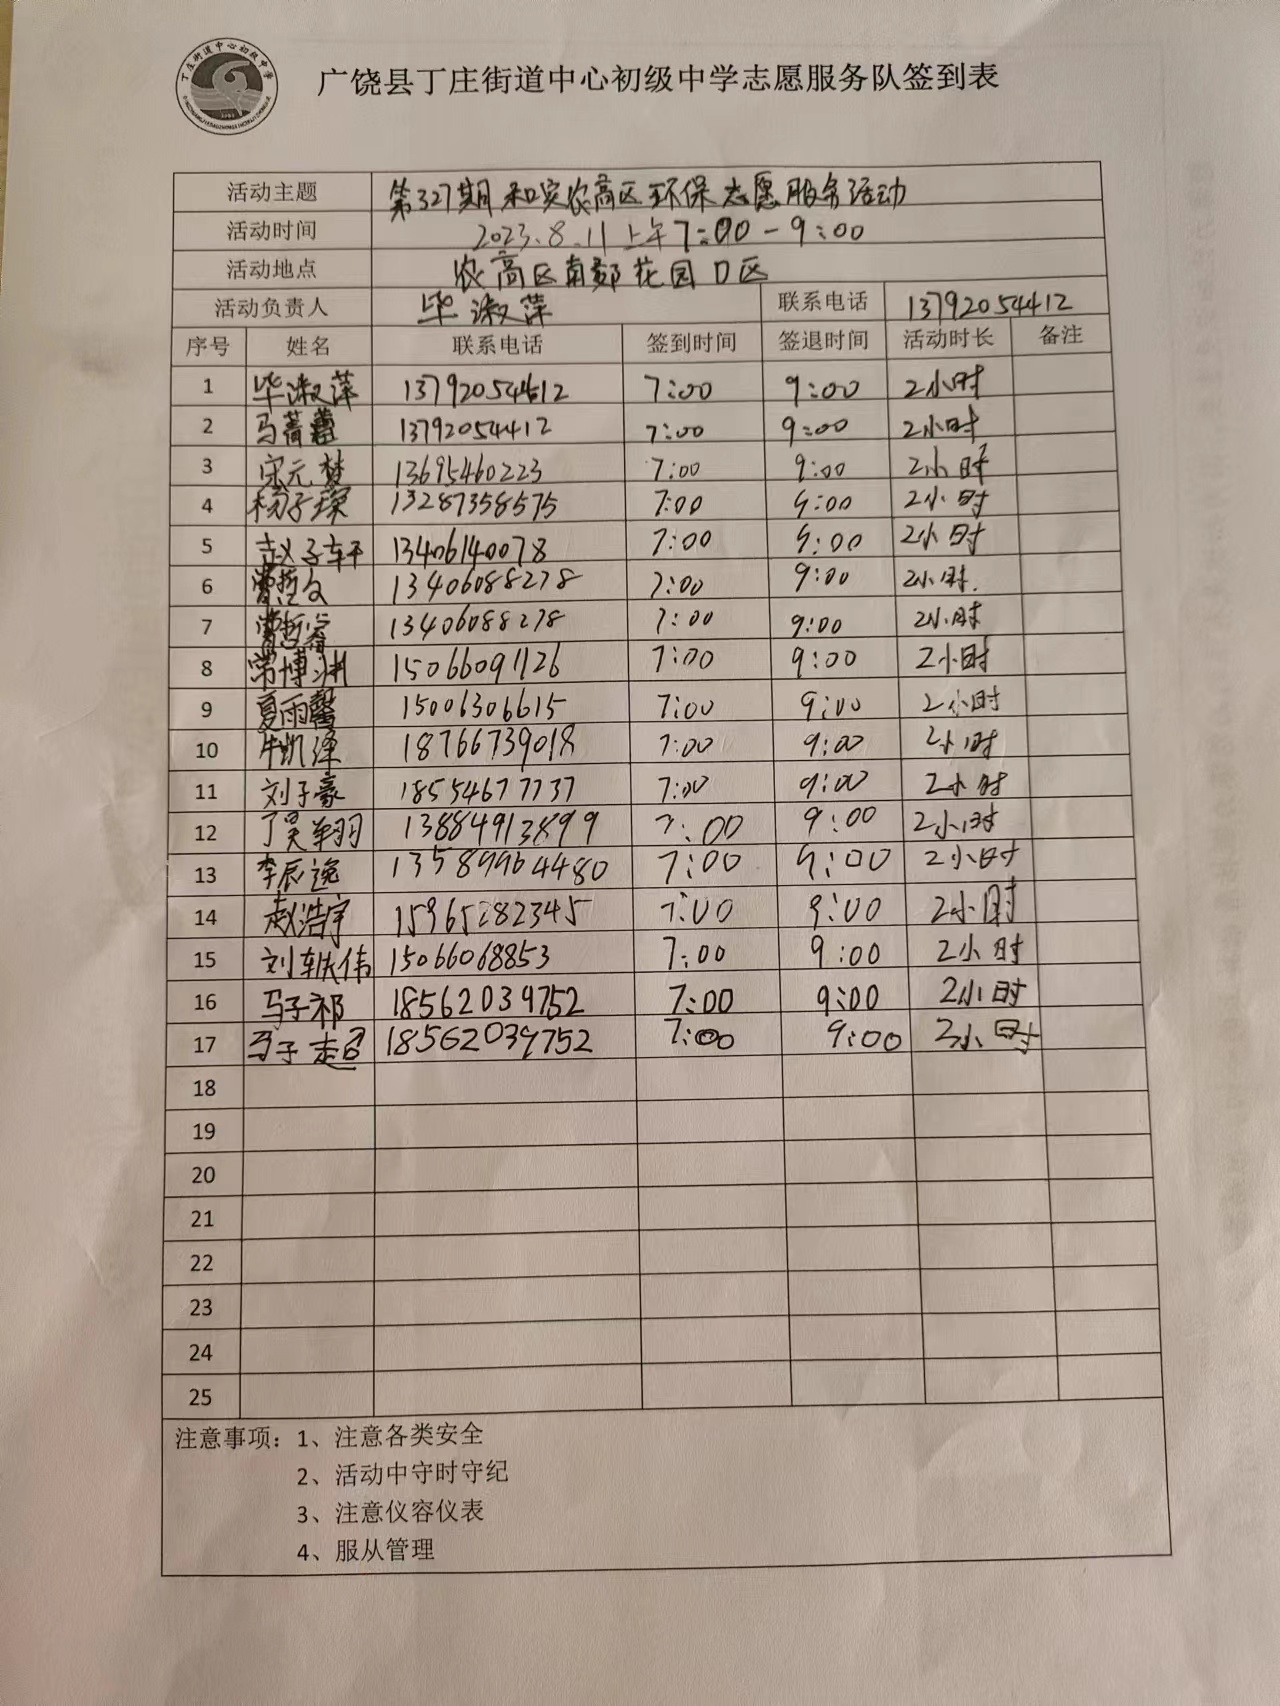 丁庄街道中心初级中学
广饶县丁庄街道中心初级中学志愿服务队签到表
活动主题 第327期和实农高区环保志愿服务活动
活动时间 2023.8.11上午7:00-9:00
活动地点 农高区南郊花园D区
活动负责人 毕淑萍 联系电话 13792054412
序号 姓名 联系电话 签到时间 签退时间 活动时长 备注
1 毕淑萍 13792054412 7:00 9:00 2小时
2 马蔷蕾 13792054412 7:00 9:00 2小时
3 宋元梦 13695460223 7:00 9:00 2小时
4 杨子琛 13287358575 7:00 9:00 2小时
5 赵子轩 13406140078 7:00 9:00 2小时
6 13406088278 7:00 9:00 2小时.
7 13406088278 7:00 9:00 2小时
8 常博渊 15066091126 7:00 9:00 2小时
9 夏雨馨 15006306615 7:00 9:00 2小时
10 牛凯泽 18766739018 7:00 9:00 2小时
11 刘子豪 18554677737 7:00 9:00 2小时
12 丁昊翔 13884913899 7:00 9:00 2小时
13 李辰逸 13589964480 7:00 9:00 2小时
14 赵浩宇 15965282345 7:00 9:00 2小时
15 刘轶伟 15066068853 7:00 9:00 2小时
16 马子祁 18562039752 7:00 9:00 2小时
17 马子超 18562039752 7:00 9:00 2小时
18
19
20
21
22
23
24
25
注意事项：1、注意各类安全
2、活动中守时守纪
3、注意仪容仪表
4、服从管理